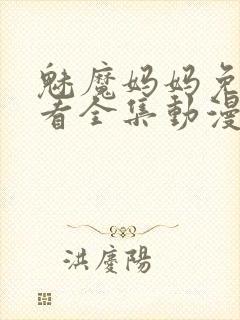 魅魔妈妈免
看全集動漫
洪慶陽